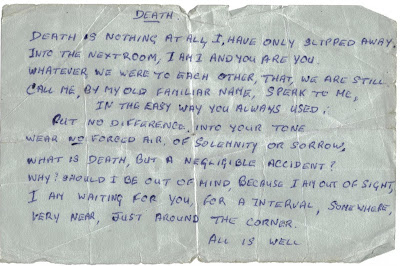 DEATH.
DEATH IS NOTHING AT ALL, I, HAVE ONLY SLIPPED AWAY.
INTO THE NEXT ROOM, I AM I AND YOU ARE YOU.
WHATEVER WE WERE TO EACH OTHER, THAT, WE ARE STILL
CALL ME, BY MY OLD FAMILIAR NAME, SPEAK TO ME,
IN THE EASY WAY YOU ALWAYS USED,
PUT NO DIFFERENCE, INTO YOUR TONE
WEAR NO FORCED AIR, OF SOLEMNITY OR SORROW,
WHAT IS DEATH, BUT A NEGLIGIBLE ACCIDENT?
WHY? SHOULD I BE OUT OF MIND, BECAUSE I AM OUT OF SIGHT,
I AM WAITING FOR YOU, FOR A INTERVAL, SOMEWHERE,
VERY NEAR, JUST AROUND THE CORNER.
ALL IS WELL